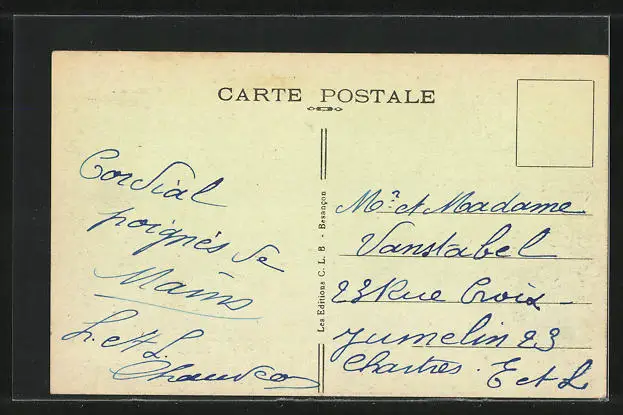 CARTE POSTALE
Cordial
poignés de
Mains
L. et L.
Les Editions C. L. B. - Besançon
Mr et Madame
Vanstabel
23 Rue Croix
Jumelin 23
Chartres. E et L